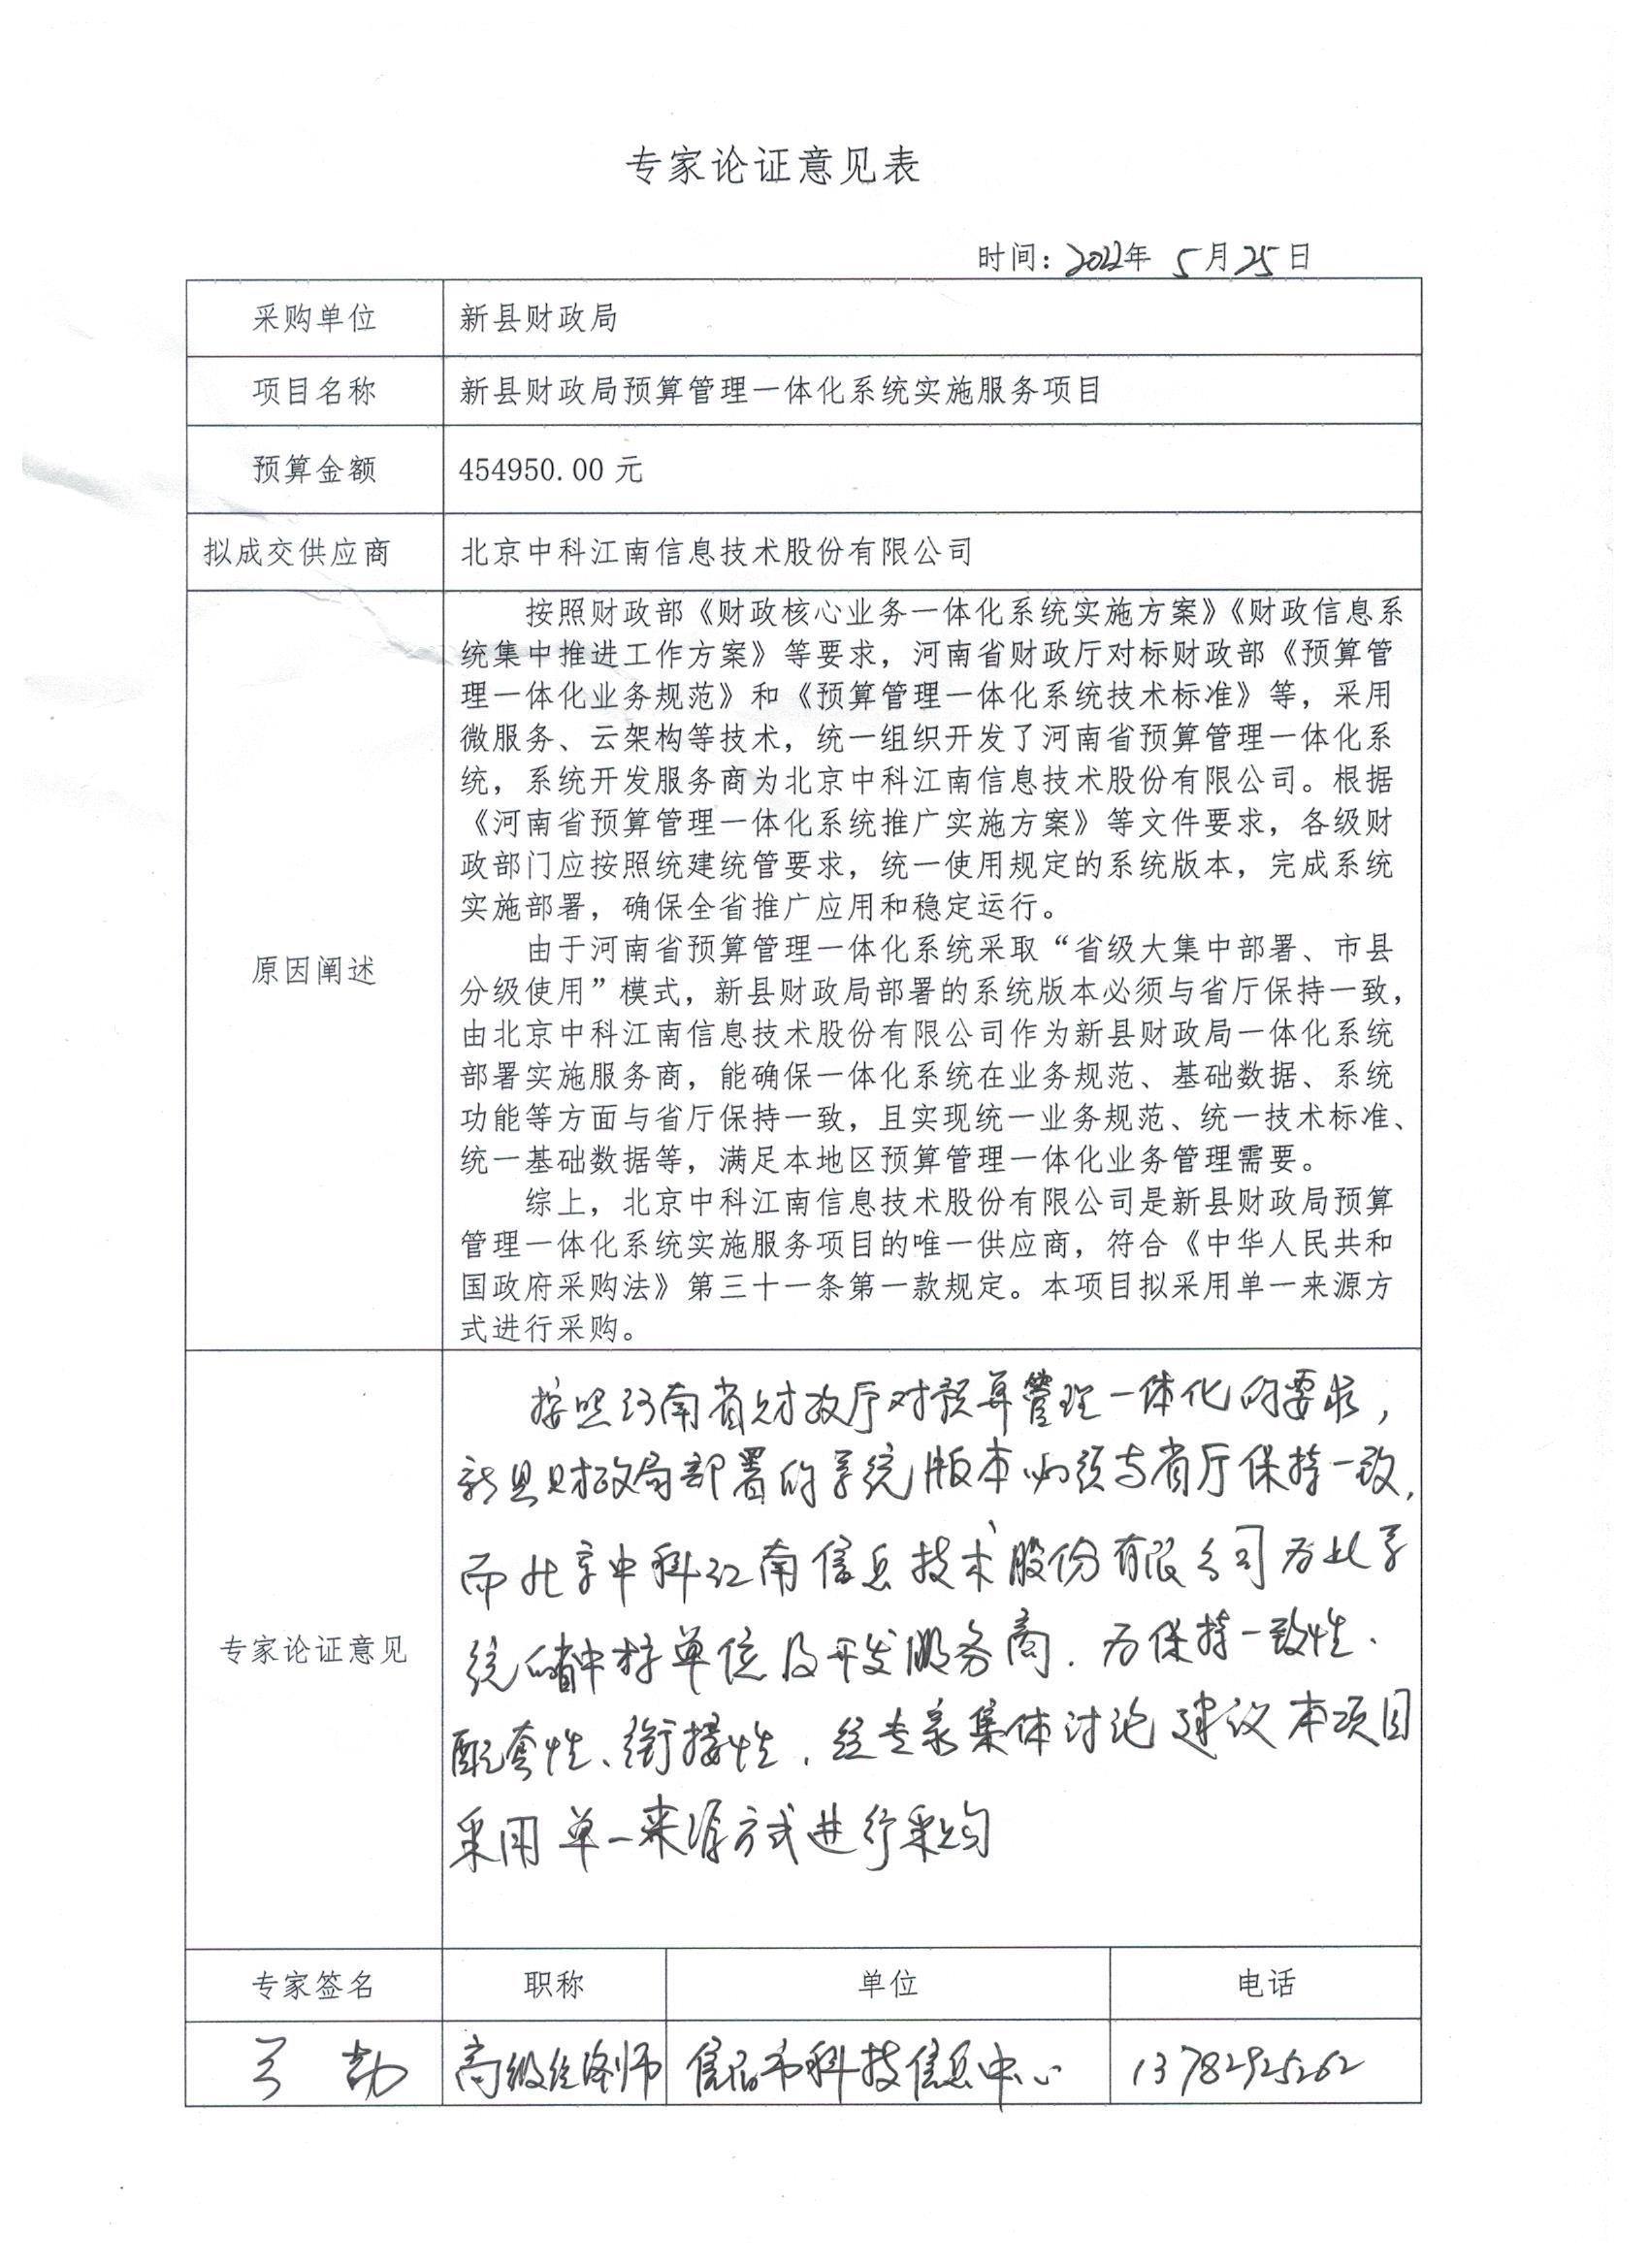 专家论证意见表
时间：2022年 5月25日
采购单位
新县财政局
项目名称
新县财政局预算管理一体化系统实施服务项目
预算金额
454950.00 元
拟成交供应商
北京中科江南信息技术股份有限公司
原因阐述
按照财政部《财政核心业务一体化系统实施方案》《财政信息系
统集中推进工作方案》等要求，河南省财政厅对标财政部《预算管
理一体化业务规范》和《预算管理一体化系统技术标准》等，采用
微服务、云架构等技术，统一组织开发了河南省预算管理一体化系
统，系统开发服务商为北京中科江南信息技术股份有限公司。根据
《河南省预算管理一体化系统推广实施方案》等文件要求，各级财
政部门应按照统建统管要求，统一使用规定的系统版本，完成系统
实施部署，确保全省推广应用和稳定运行。
由于河南省预算管理一体化系统采取“省级大集中部署、市县
分级使用”模式，新县财政局部署的系统版本必须与省厅保持一致，
由北京中科江南信息技术股份有限公司作为新县财政局一体化系统
部署实施服务商，能确保一体化系统在业务规范、基础数据、系统
功能等方面与省厅保持一致，且实现统一业务规范、统一技术标准、
统一基础数据等，满足本地区预算管理一体化业务管理需要。
综上，北京中科江南信息技术股份有限公司是新县财政局预算
管理一体化系统实施服务项目的唯一供应商，符合《中华人民共和
国政府采购法》第三十一条第一款规定。本项目拟采用单一来源方
式进行采购。
专家论证意见
按照河南省财政厅对预算管理一体化的要求，
新县财政局部署的系统版本必须与省厅保持一致，
而北京中科江南信息技术股份有限公司为此系
统的省中标单位及开发服务商．为保持一致性、
配套性、衔接性，经专家集体讨论建议本项目
采用单一来源方式进行采购
专家签名
职称
单位
电话
高级经济师
信阳市科技信息中心
13782925262